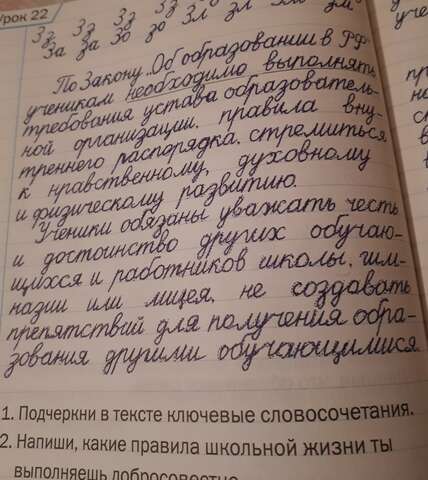 Урок 22
Зз Зз Зз Зз
За за Зо зо Зл зл
По Закону „Об образовании в РФ"
ученикам необходимо выполнять
требования устава образователь-
ной организации, правила вну-
треннего распорядка, стремиться
к нравственному, духовному
и физическому развитию.
Ученики обязаны уважать честь
и достоинство других обучаю-
щихся и работников школы, гим-
назии или лицея, не создавать
препятствий для получения обра-
зования другими обучающимися
1. Подчеркни в тексте ключевые словосочетания.
2. Напиши, какие правила школьной жизни ты
выполняешь добросовестно